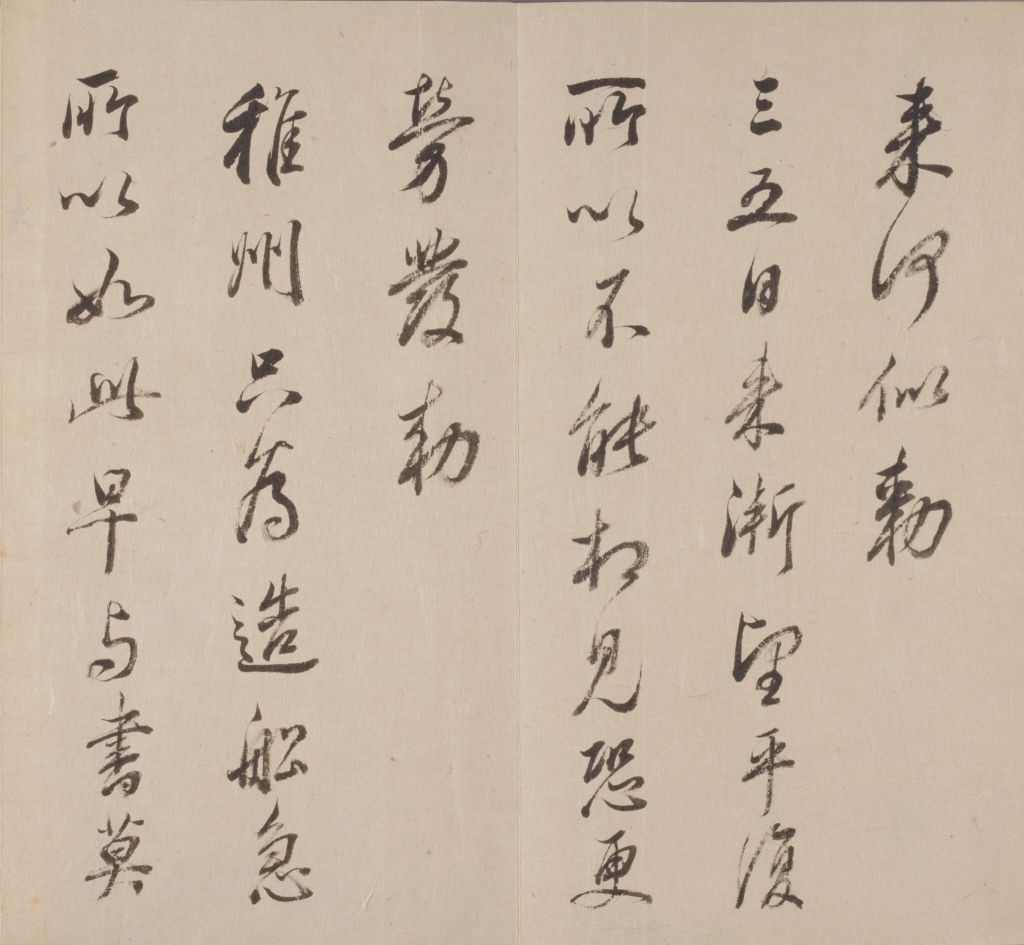 来何似敕
三五日来漸望平復
所以不能相見恐更
勞發敕
雅州只為造船急
所以如此早与書莫